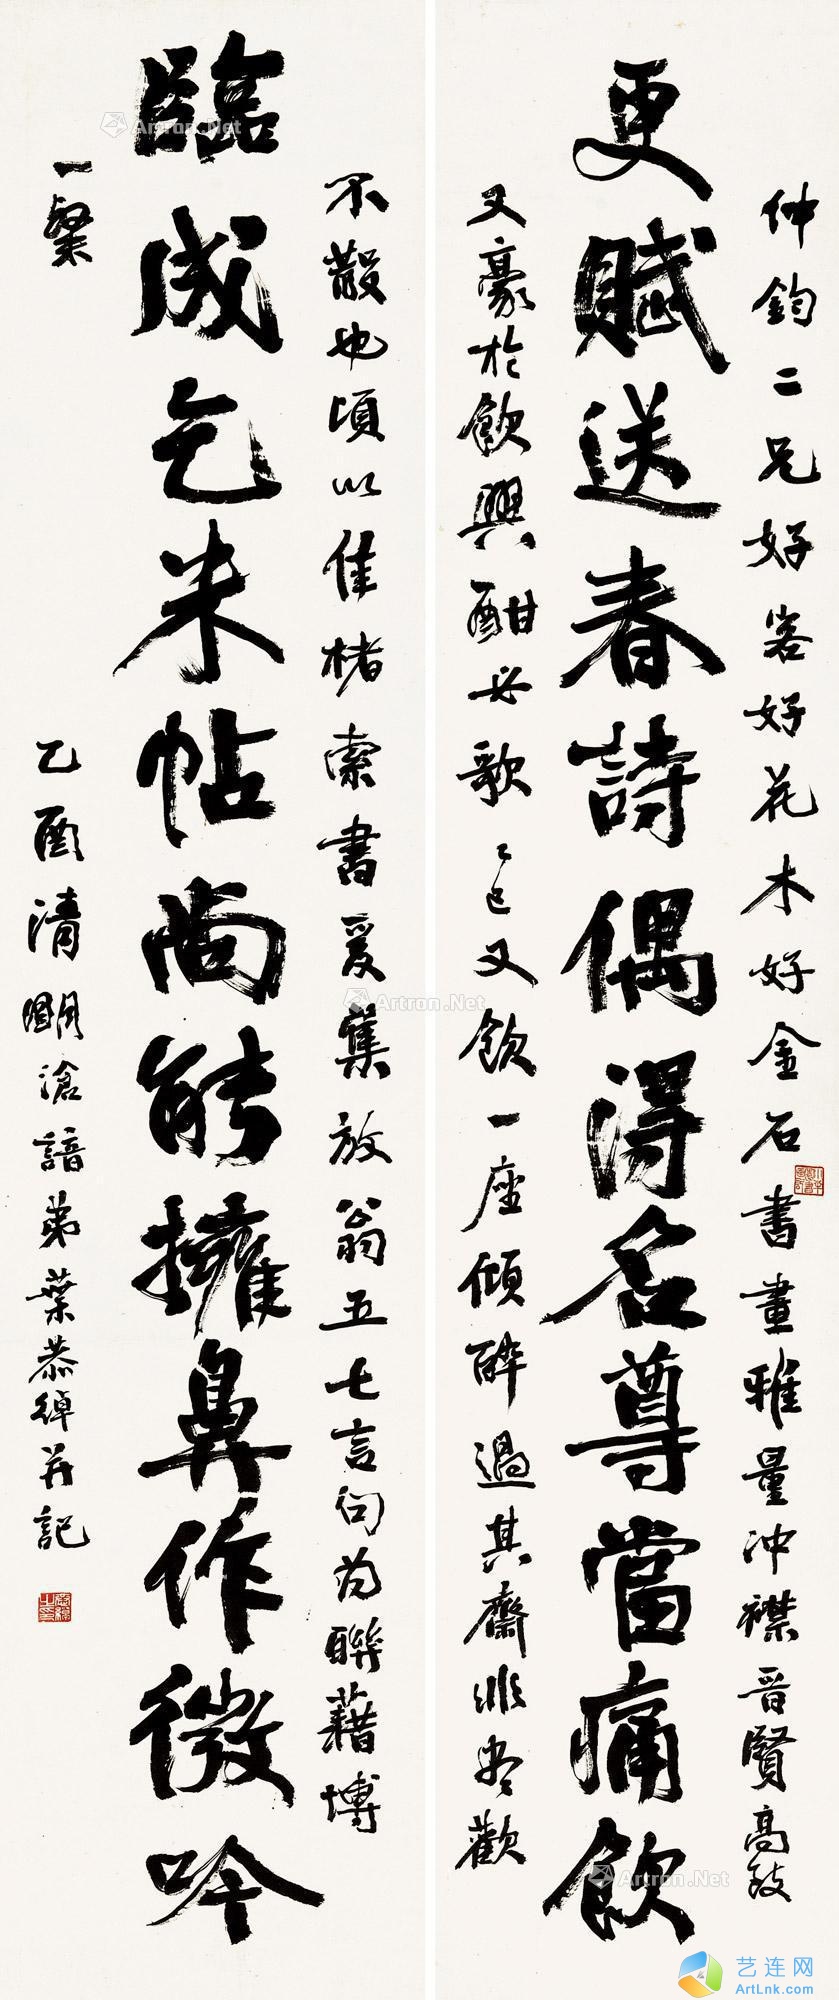 仲鈞二兄好客好花木好金石書畫雅量沖襟晉賢高致
更賦送春詩偶得名尊當痛飲
又豪於飲興酣必歌歌已又飲一座傾醉過其齋非盡歡
不散也頃以佳楮索書爰集放翁五七言句為聯藉博
臨成乞米帖尚能擁鼻作微吟
一粲
乙酉清明滄諳弟葉恭綽并記
Artron.Net
Artron.Net
Artron.Net
艺连网
ArtLnk.com